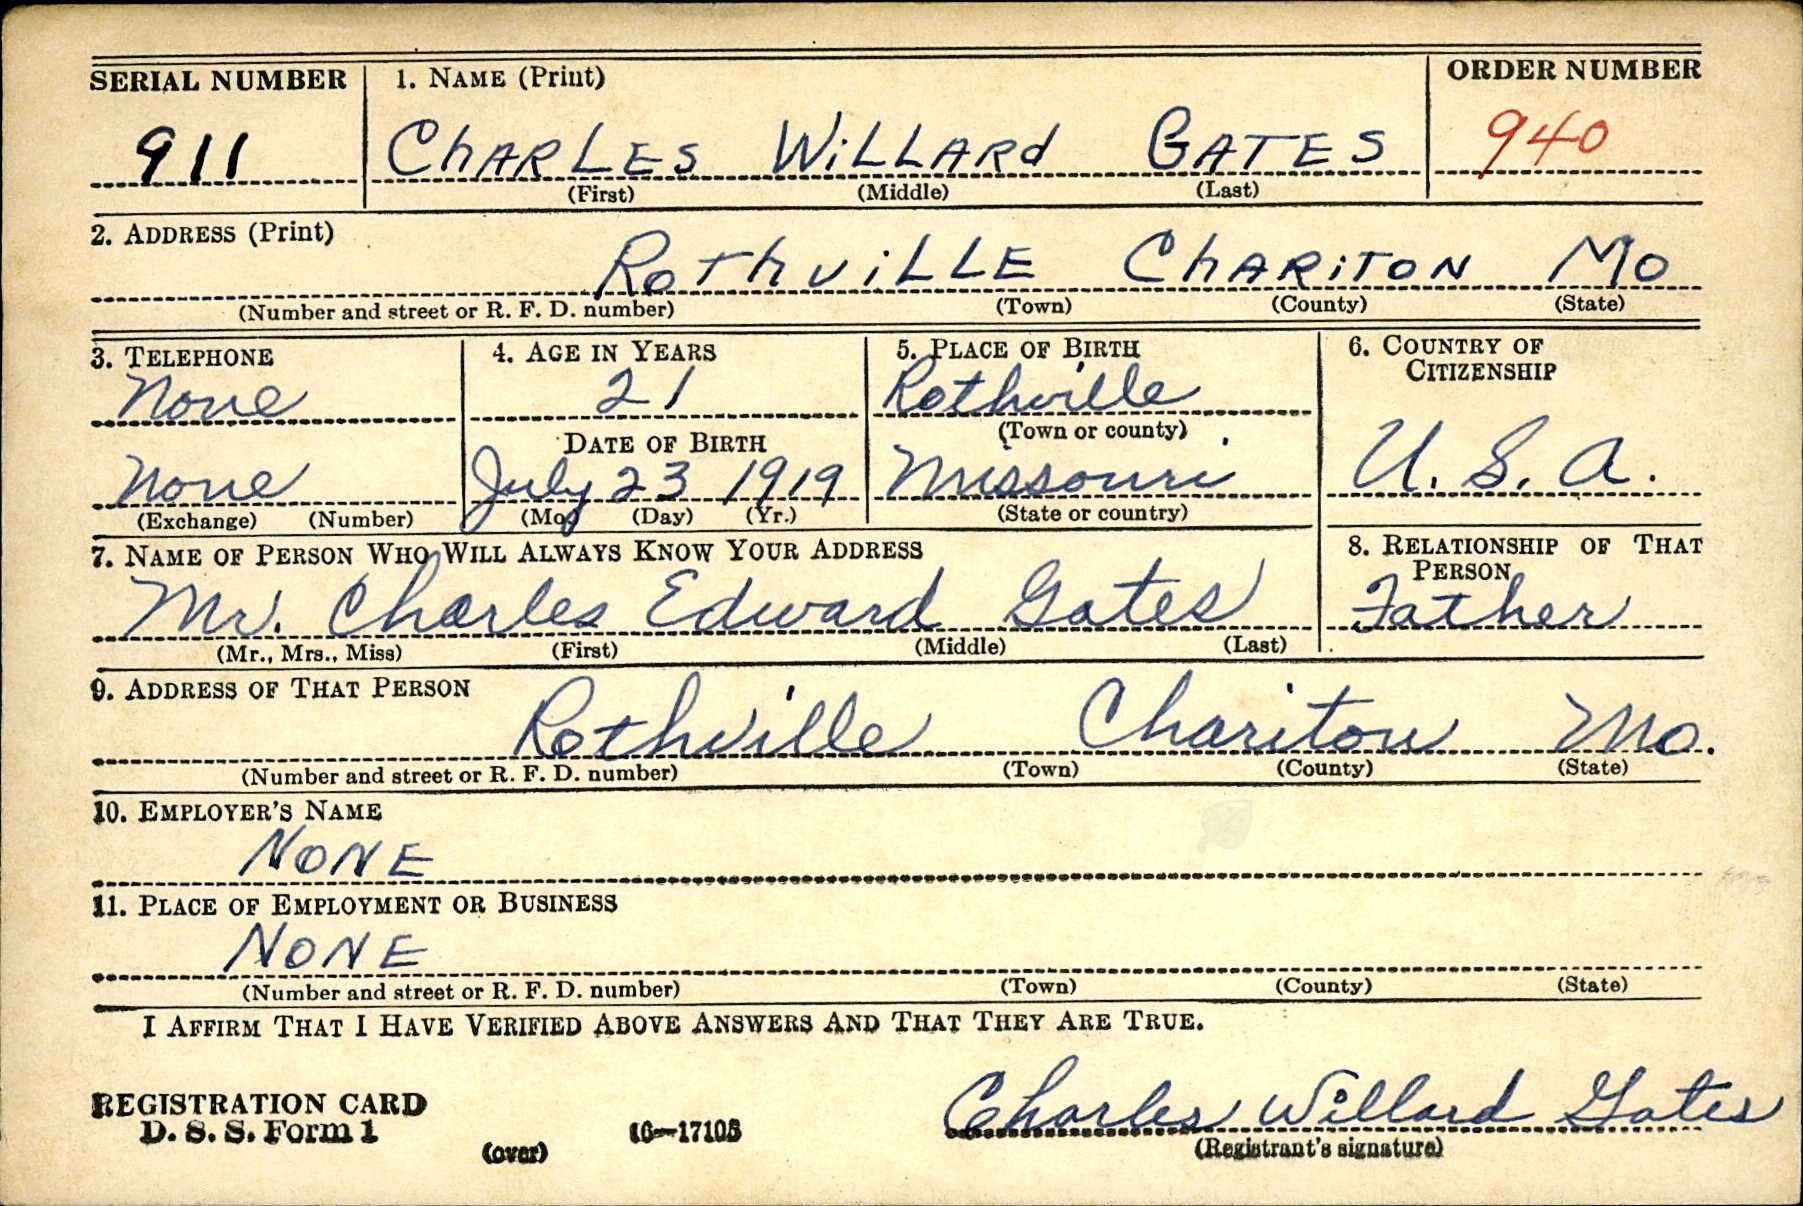 SERIAL NUMBER 1. NAME (Print) ORDER NUMBER
911 CHARLES WILLARD GATES 940
(First) (Middle) (Last)
2. ADDRESS (Print)
ROTHVILLE CHARITON MO
(Number and street or R. F. D. number) (Town) (County) (State)
3. TELEPHONE 4. AGE IN YEARS 5. PLACE OF BIRTH 6. COUNTRY OF
CITIZENSHIP
None 21 Rothville
(Town or county)
DATE OF BIRTH
None July 23 1919 Missouri U. S. A.
(Exchange) (Number) (Mo.) (Day) (Yr.) (State or country)
7. NAME OF PERSON WHO WILL ALWAYS KNOW YOUR ADDRESS 8. RELATIONSHIP OF THAT
PERSON
Mr. Charles Edward Gates Father
(Mr., Mrs., Miss) (First) (Middle) (Last)
9. ADDRESS OF THAT PERSON
Rothville Chariton Mo.
(Number and street or R. F. D. number) (Town) (County) (State)
10. EMPLOYER'S NAME
NONE
11. PLACE OF EMPLOYMENT OR BUSINESS
NONE
(Number and street or R. F. D. number) (Town) (County) (State)
I AFFIRM THAT I HAVE VERIFIED ABOVE ANSWERS AND THAT THEY ARE TRUE.
REGISTRATION CARD
D. S. S. Form 1
(over)
16—17105
Charles Willard Gates
(Registrant's signature)